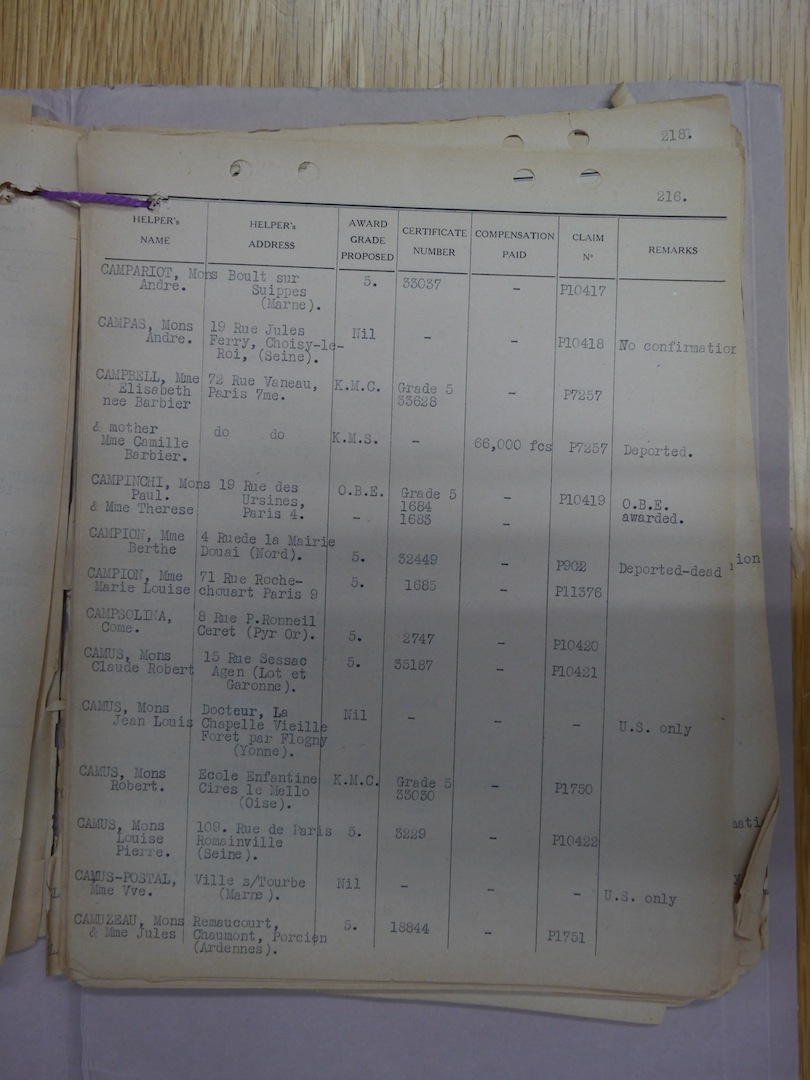 218.
216.
HELPER's NAME HELPER's ADDRESS AWARD GRADE PROPOSED CERTIFICATE NUMBER COMPENSATION PAID CLAIM Nº REMARKS
CAMPARIOT, Mons Boult sur 5. 33037 - P10417
Andre. Suippes
(Marne).
CAMPAS, Mons 19 Rue Jules Nil - - P10418 No confirmation
Andre. Ferry, Choisy-le-
Roi, (Seine).
CAMPBELL, Mme 72 Rue Vaneau, K.M.C. Grade 5 - P7257
Elisabeth Paris 7me. 33628
nee Barbier
& mother do do K.M.S. - 66,000 fcs P7257 Deported.
Mme Camille
Barbier.
CAMPINCHI, Mons 19 Rue des O.B.E. Grade 5 - P10419 O.B.E.
Paul. Ursines, 1684 awarded.
& Mme Therese Paris 4. - 1683 -
CAMPION, Mme 4 Ruede la Mairie
Berthe Douai (Nord). 5. 32449 - P902 Deported-dead
ion
CAMPION, Mme 71 Rue Roche- 5. 1685 - P11376
Marie Louise chouart Paris 9
CAMPSOLINA, 8 Rue P.Ronneil
Come. Ceret (Pyr Or). 5. 2747 - P10420
CAMUS, Mons 15 Rue Sessac 5. 35187 - P10421
Claude Robert Agen (Lot et
Garonne).
CAMUS, Mons Docteur, La Nil - - - U.S. only
Jean Louis Chapelle Vieille
Foret par Flogny
(Yonne).
CAMUS, Mons Ecole Enfantine K.M.C. Grade 5 - P1750
Robert. Cires le Mello 33030
(Oise).
CAMUS, Mons 109. Rue de Paris 5. 3229 - P10422
Louise Romainville
Pierre. (Seine).
CAMUS-POSTAL, Ville s/Tourbe Nil - - - U.S. only
Mme Vve. (Marne).
CAMUZEAU, Mons Remaucourt, 5. 18844 - P1751
& Mme Jules Chaumont, Porcien
(Ardennes).